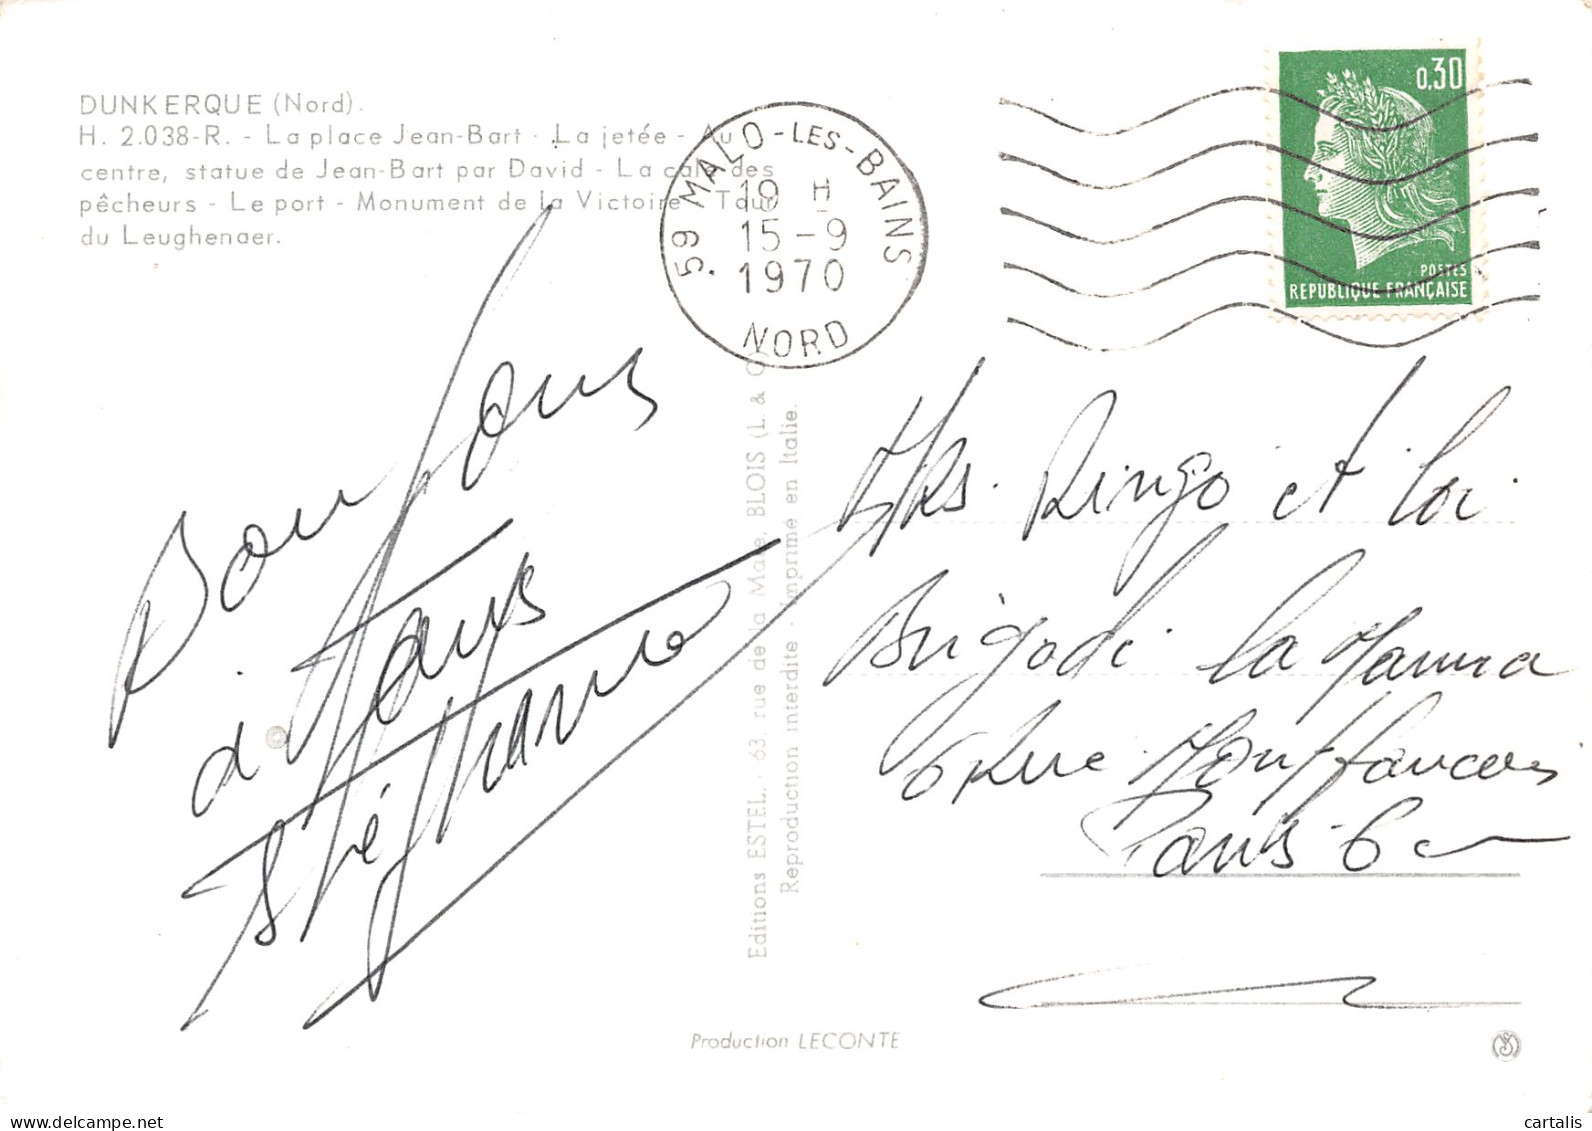 DUNKERQUE (Nord).
H. 2.038-R. - La place Jean-Bart - La jetée - Au
centre, statue de Jean-Bart par David - La cale des
pêcheurs - Le port - Monument de la Victoire - Tour
du Leughenaer.
59 MALO-LES-BAINS
19 H
15-9
1970
NORD
0,30
POSTES
REPUBLIQUE FRANÇAISE
Bonjour
à
Stéphanie
Mrs. Ringo et Loi
Brigadi la
6 Rue Montfaucon
Paris 6
Editions ESTEL. - 63, rue de la Mare, BLOIS (L. & C)
Reproduction interdite - Imprimé en Italie.
Production LECONTE
cartalis
delcampe.net